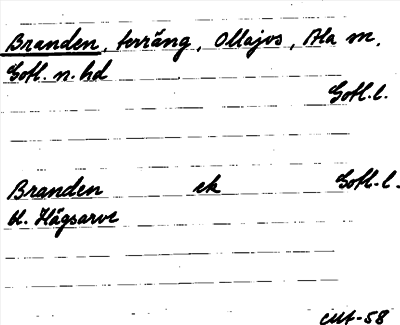 Branden, terräng, Ollajvs, Ala sn,
Gotl. n. hd
Gotl. l.
Branden ek Gotl. l.
St. Hägsarve
CMt-58